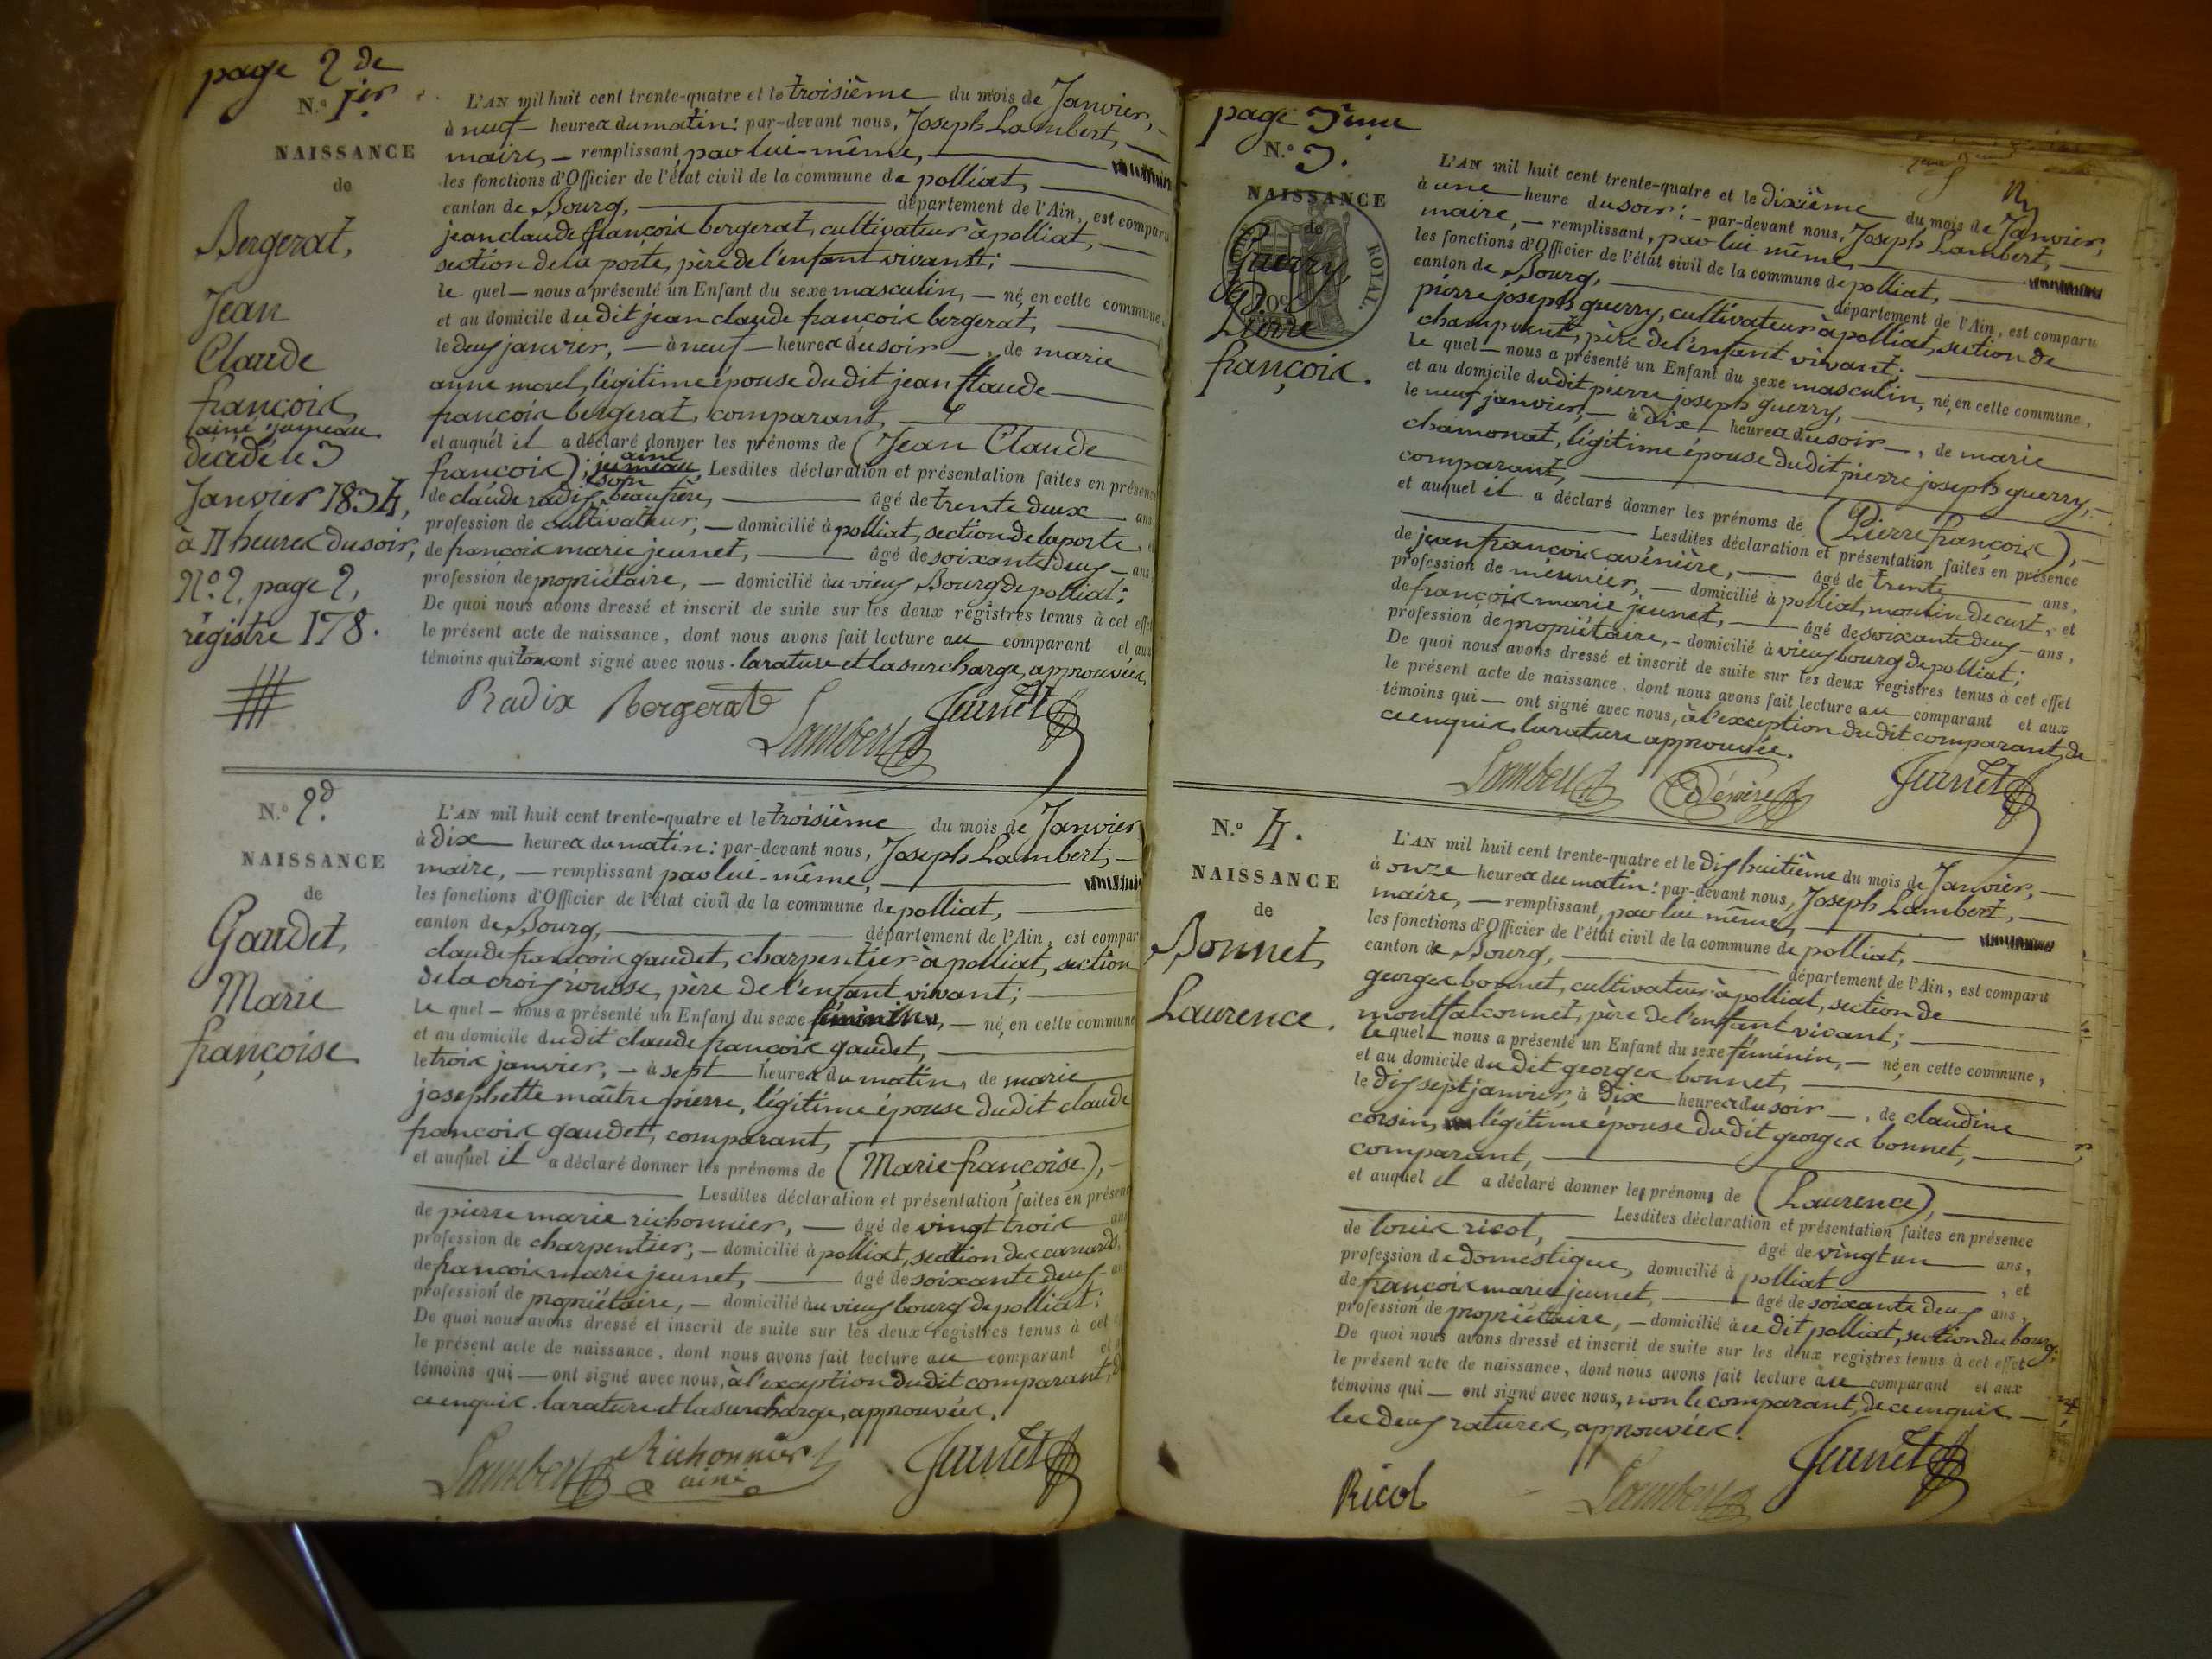 page 2de
N.o 1er.
NAISSANCE
de
Bergerat,
Jean
Claude
françois,
ainé jumeau
décédé le 3
Janvier 1834,
à 11 heures du soir,
N.o 2, page 2,
régistre 178.
L'AN mil huit cent trente-quatre et le troisième du mois de Janvier,
à neuf heures du matin: par-devant nous, Joseph Lambert,
maire, remplissant, par lui-même,
les fonctions d'Officier de l'état civil de la commune de polliat,
canton de Bourg, département de l'Ain, est comparu
jean claude françois bergerat, cultivateur à polliat,
section de la poite, père de l'enfant vivant;
le quel nous a présenté un Enfant du sexe masculin, né, en cette commune,
et au domicile du dit jean claude françois bergerat,
le deux janvier, à neuf heures du soir, de marie
anne morel, légitime épouse du dit jean claude
françois bergerat, comparant,
et auquel il a déclaré donner les prénoms de (Jean Claude
françois); jumeau ainé Lesdites déclaration et présentation faites en présence
de claude radix, son beaufrère, âgé de trente deux ans
profession de cultivateur, domicilié à polliat, section de la porte,
de françois marie jeunet, âgé de soixante deux ans
profession de propriétaire, domicilié au vieux Bourg de polliat;
De quoi nous avons dressé et inscrit de suite sur les deux registres tenus à cet effet
le présent acte de naissance, dont nous avons fait lecture au comparant et aux
témoins qui tous ont signé avec nous. la rature et la surcharge, approuvées.
Radix Bergerat Lambert Jeunet
N.o 2d.
NAISSANCE
de
Gaudet,
Marie
françoise
L'AN mil huit cent trente-quatre et le troisième du mois de Janvier
à dix heures du matin: par-devant nous, Joseph Lambert,
maire, remplissant par lui-même,
les fonctions d'Officier de l'état civil de la commune de polliat,
canton de Bourg, département de l'Ain, est compar
claude françois gaudet, charpentier à polliat, section
de la croix rousse, père de l'enfant vivant;
le quel nous a présenté un Enfant du sexe féminin, né, en cette commune
et au domicile du dit claude françois gaudet,
le trois janvier, à sept heures du matin, de marie
josephette maître pierre, légitime épouse du dit claude
françois gaudet, comparant,
et auquel il a déclaré donner les prénoms de (Marie françoise),
Lesdites déclaration et présentation faites en présen
de pierre marie richonnier, âgé de vingt trois ans
profession de charpentier, domicilié à polliat, section des canards,
de françois marie jeunet, âgé de soixante deux
profession de propriétaire, domicilié au vieux bourg de polliat;
De quoi nous avons dressé et inscrit de suite sur les deux registres tenus à cet
le présent acte de naissance, dont nous avons fait lecture au comparant
témoins qui ont signé avec nous, à l'exception du dit comparant, de
ce enquis. la rature et la surcharge, approuvées.
Lambert Richonnier ainé Jeunet
page 3ème
N.o 3.
NAISSANCE
de
Guerry,
Pierre
françois.
ROYAL
L'AN mil huit cent trente-quatre et le dixième du mois de Janvier,
à une heure du soir: par-devant nous, Joseph Lambert,
maire, remplissant, par lui même,
les fonctions d'Officier de l'état civil de la commune de polliat,
canton de Bourg, département de l'Ain, est comparu
pierre joseph guerry, cultivateur à polliat, section de
champvent, père de l'enfant vivant;
le quel nous a présenté un Enfant du sexe masculin, né, en cette commune,
et au domicile du dit pierre joseph guerry,
le neuf janvier, à dix heures du soir, de marie
chamonat, légitime épouse du dit pierre joseph guerry,
comparant,
et auquel il a déclaré donner les prénoms de (Pierre françois),
Lesdites déclaration et présentation faites en présence
de jean françois avénière, âgé de trente ans,
profession de meunier, domicilié à polliat, moulin de cust, et
de françois marie jeunet, âgé de soixante deux ans,
profession de propriétaire, domicilié à vieux bourg de polliat;
De quoi nous avons dressé et inscrit de suite sur les deux registres tenus à cet effet
le présent acte de naissance, dont nous avons fait lecture au comparant et aux
témoins qui ont signé avec nous, à l'exception du dit comparant, de
ce enquis. la rature approuvée.
Lambert Jeunet
N.o 4.
NAISSANCE
de
Bonnet,
Laurence.
L'AN mil huit cent trente-quatre et le dix huitième du mois de Janvier,
à onze heures du matin: par-devant nous, Joseph Lambert,
maire, remplissant, par lui même,
les fonctions d'Officier de l'état civil de la commune de polliat,
canton de Bourg, département de l'Ain, est comparu
georges bonnet, cultivateur à polliat, section de
montfalconnet, père de l'enfant vivant;
le quel nous a présenté un Enfant du sexe féminin, né, en cette commune,
et au domicile du dit georges bonnet,
le dix sept janvier, à dix heures du soir, de claudine
corsin, légitime épouse du dit georges bonnet,
comparant,
et auquel il a déclaré donner les prénoms de (Laurence),
Lesdites déclaration et présentation faites en présence
de louis ricol, âgé de vingt un ans,
profession de domestique, domicilié à polliat, et
de françois marie jeunet, âgé de soixante deux ans,
profession de propriétaire, domicilié à u dit polliat, section du bourg;
De quoi nous avons dressé et inscrit de suite sur les deux registres tenus à cet effet
le présent acte de naissance, dont nous avons fait lecture au comparant et aux
témoins qui ont signé avec nous, non le comparant, de ce enquis.
les deux ratures, approuvées.
Ricol Lambert Jeunet